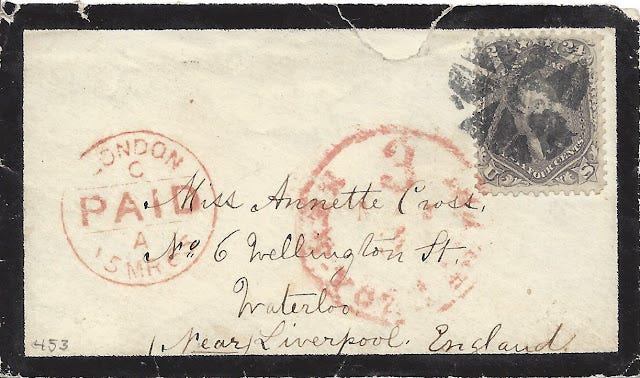 24 24
TWENTY FOUR CENTS
U S
LONDON
C
PAID
A
15 MR 6
3
Miss Annette Cross.
No 6 Wellington St.
Waterloo
(Near) Liverpool. England
453